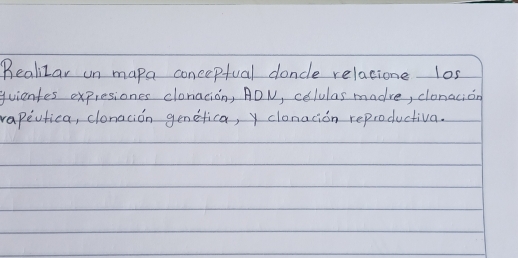 Realizar un mapa conceptual donde relacione los
guientes expresiones clonación, ADN, células madre, clonación
rapéutica, clonación genética, y clonación reproductiva.